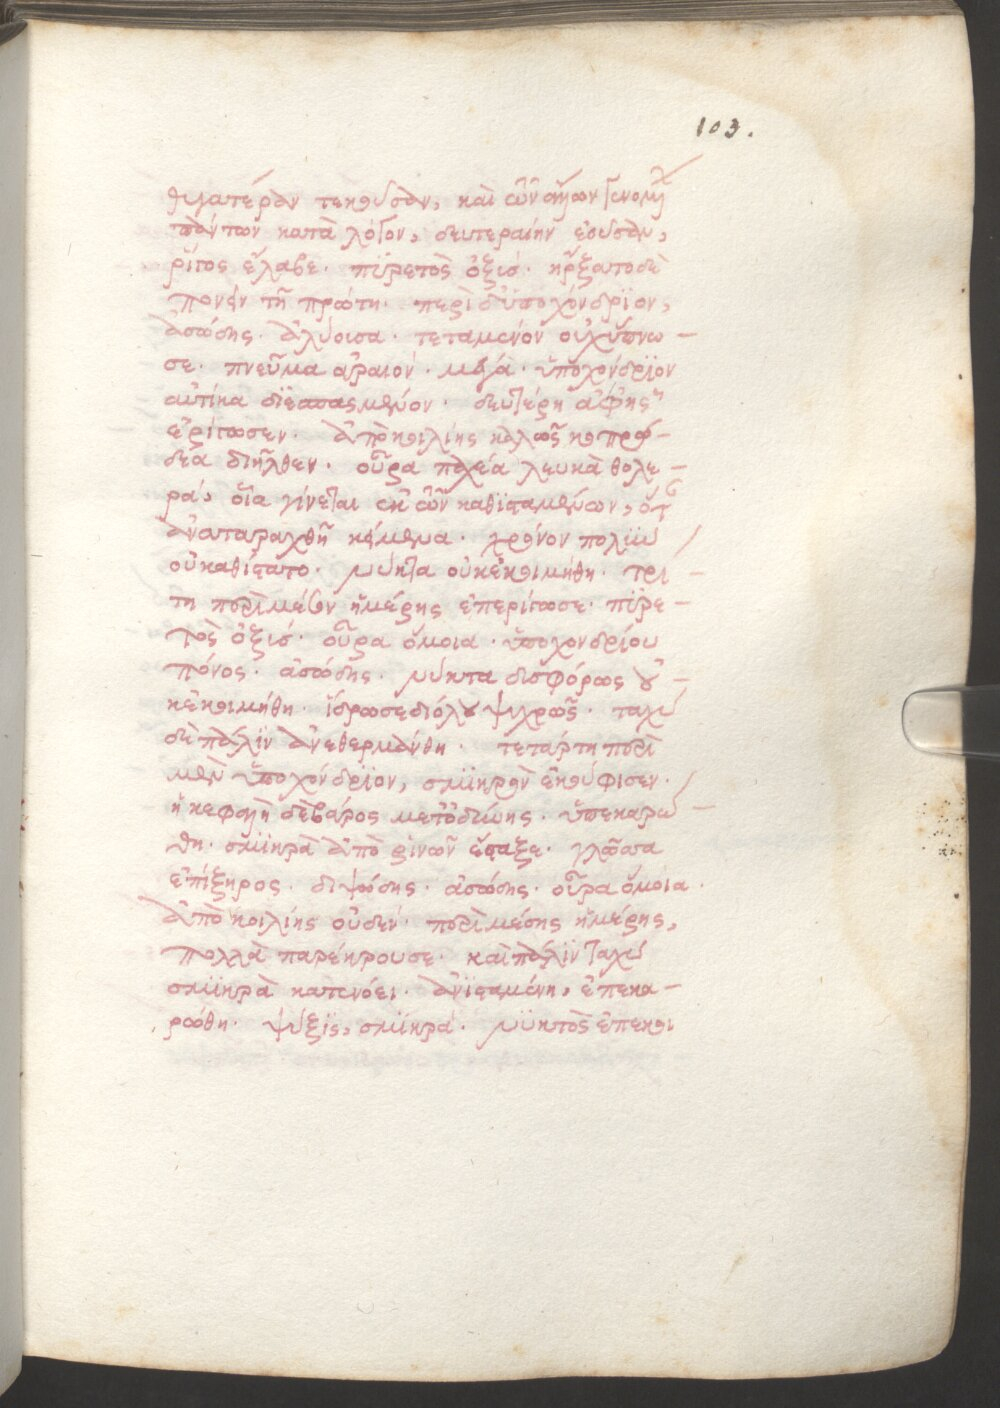 103.
θυγατέραν τεκοῦσαν, καὶ τῶν ἄλλων γενομ
πάντων κατὰ λόγον, δευτεραίην ἐοῦσαν,
ῥῖγος ἔλαβε· πῦρετὸς ὀξύς· ἤρξατο δὲ
πονεῖν τῇ πρώτῃ· περὶ δ' ὑποχόνδρϊον,
ἀσώδης· ἀλύουσα· τεταμένον οὐχ ὕπνω –
σε· πνεῦμα ἀραιόν· μέγα· ὑποχόνδρϊον
αὐτίκα διεσπασμένον· δευτέρη ἀφ' ἧς
ἐρίγωσεν· ἀπὸ κοιλίης καλῶς κοπρώ –
δεα διῆλθεν· οὖρα παχέα λευκὰ θολε –
ρά, οἷα γίνεται ἐκ τῶν καθϊσταμένων, ὅτ
ἀναταραχθῇ κείμενα· χρόνον πολὺν
οὐ καθίστατο· νύκτα οὐκ ἐκοιμήθη· τρί –
τη περὶ μέσον ἡμέρης ἐπερίγωσε· πῦρε –
τὸς ὀξύς· οὖρα ὅμοια· ὑποχονδρίου
πόνος· ἀσώδης· νύκτα δυσφόρως οὐ –
κ ἐκοιμήθη· ἵδρωσε δι' ὅλου ψυχρῶς· ταχὺ
δὲ πάλϊν ἀνεθερμάνθη· τετάρτη περὶ
μὲν ὑποχόνδρϊον, σμικρὸν ἐκούφισεν·
ἡ κεφαλὴ δὲ βάρος μετ' ὀδύνης· ὑπεκαρώ –
θη· σμικρὰ ἀπὸ ῥινῶν ἔσταξε· γλῶσσα
ἐπίξηρος· διψώδης· ἀσώδης· οὖρα ὅμοια·
ἀπὸ κοιλίης οὐδέν· περὶ μέσης ἡμέρης,
πολλὰ παρέκρουσε· καὶ πάλϊν ταχὺ
σμικρὰ κατενόει· ἀνϊσταμένη, ἐπεκα –
ρώθη· ψύξϊς, σμικρά· νυκτὸς ἐπεκοι